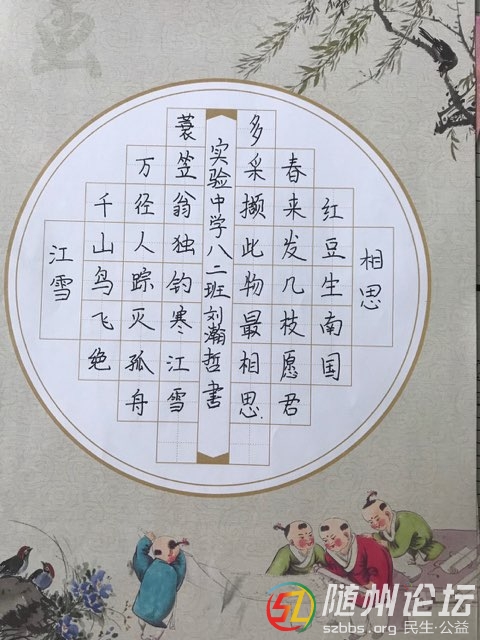 相思
红豆生南国
春来发几枝愿君
多采撷此物最相思.
实验中学八二班刘瀚哲书
江雪
千山鸟飞绝
万径人踪灭孤舟
蓑笠翁独钓寒江雪
随州论坛
szbbs.org 民生·公益